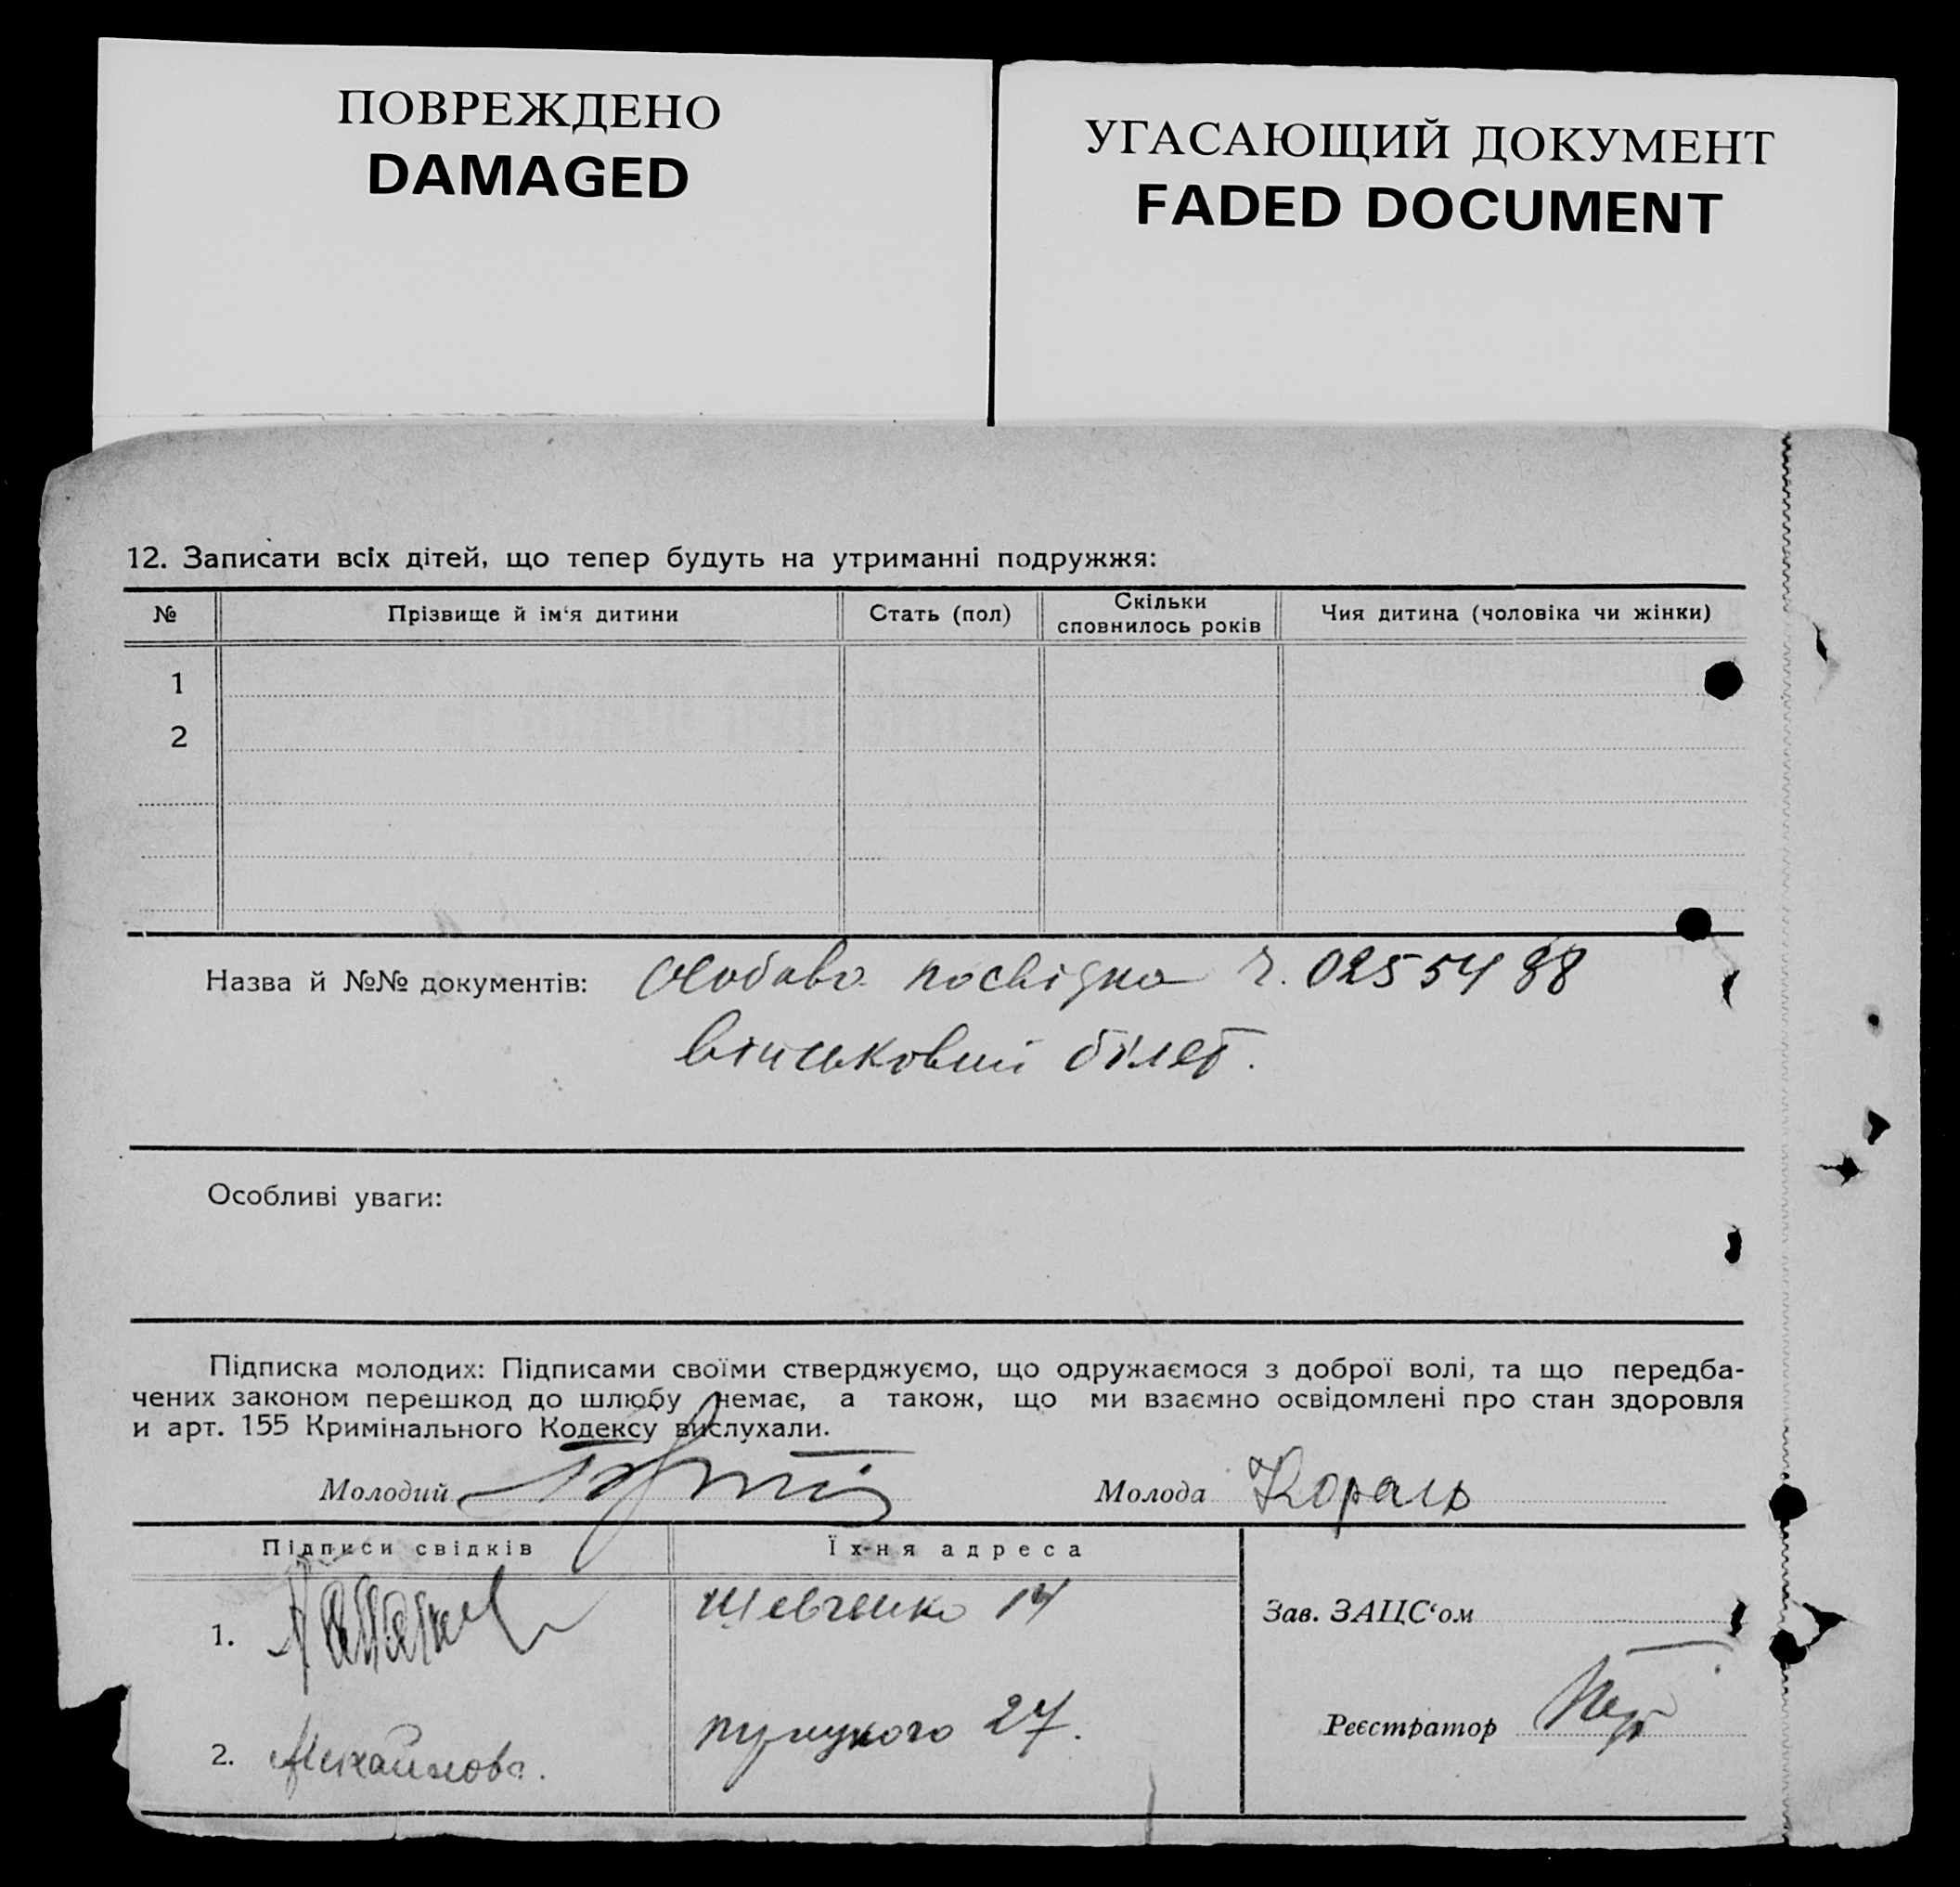 ПОВРЕЖДЕНО
DAMAGED
УГАСАЮЩИЙ ДОКУМЕНТ
FADED DOCUMENT
12. Записати всіх дітей, що тепер будуть на утриманні подружжя:
№ Прізвище й ім‘я дитини Стать (пол) Скільки сповнилось років Чия дитина (чоловіка чи жінки)
1
2
Назва й №№ документів: Особова посвідка ч. 0255488
військовий білет.
Особливі уваги:
Підписка молодих: Підписами своїми стверджуємо, що одружаємося з доброї волі, та що передба-
чених законом перешкод до шлюбу немає, а також, що ми взаємно освідомлені про стан здоровля
и арт. 155 Кримінального Кодексу вислухали.
Молодий Молода Кораль
Підписи свідків Їх-ня адреса
1. Шевченко 14
Зав. ЗАЦС‘ом
2. Михайлова. 27.
Реєстратор